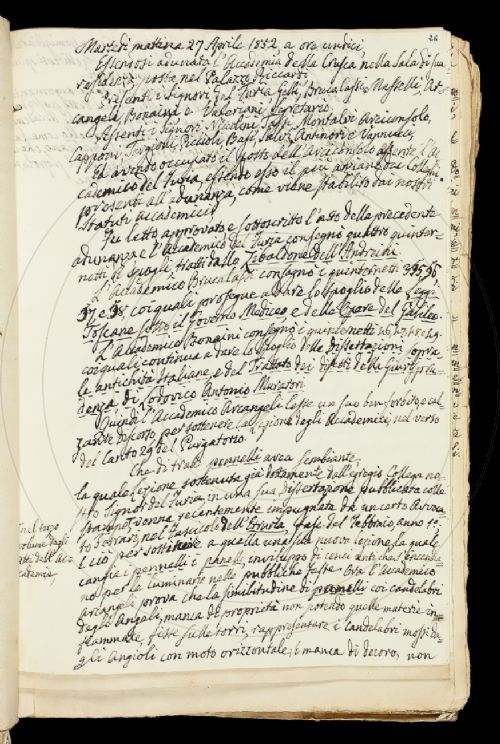 26
Martedì mattina 27 Aprile 1852, a ore undici
Essendosi adunata l'Accademia della Crusca nella Sala di sua
residenza posta nel Palazzo Riccardi
Presenti i Signori Del Furia, Brucalassi, Masselli, Ar-
cangeli, Bonaini e Valeriani Segretario.
Assenti i Signori Niccolini, Montalvi Arciconsolo,
Capponi, Targioni, Becchi, Salvi, Antinori e Vannucci.
Ed avendo occupato il posto dell'Arciconsolo assente l'Ac-
cademico del Furia, essendo esso il più anziano dei Colleghi
presenti all'adunanza, come viene stabilito dai nostri
Statuti accademici
Fu letto approvato e sottoscritto l'atto della precedente
adunanza e l'Accademico del Furia consegnò quattro quinter-
netti di spogli tratti dallo Zibaldone dell'Andreini.
L'Accademico Brucalassi consegnò i quinternetti 35, 36
37 e 38, coi quali prosegue a dare lo spoglio delle Leggi
Toscane sotto il Governo Mediceo, e delle Opere del Galileo.
L'Accademico Bonaini consegnò i quinternetti 46, 47, 48 e 49
coi quali continua a dare lo spoglio delle dissertazioni sopra
le antichità Italiane, e del Trattato dei difetti della Giurispru-
denza di Lodovico Antonio Muratori.
Quindi l'Accademico Arcangeli lesse un suo ben scritto e cal-
zante discorso per sostenere la lezione degli Accademici, nel verso
del Canto 29 del Purgatorio.
Che di tratti pennelli avea sembiante;
la quale lezione sostenuta già dottamente dall'egregio Collega no-
stro Signor del Furia in una sua dissertazione pubblicata colle
stampe, venne recentemente impugnata da un certo Avvoca-
to Ferrari, nel fascicolo dell'Etruria, mese del Febbraio, anno 1°
e ciò per sostituire a quella una sua nuova lezione, la quale
cambia i pennelli in panelli, inviluppo di cenci unti che s'accendo-
no per le luminarie nelle pubbliche feste. Ora l'Accademico
Arcangeli prova che la similitudine di panelli coi candelabri
degli Angeli, manca di proprietà non potendo quelle materie in-
fiammate, fitte sulle torri, rappresentare i candelabri mossi da-
gli Angioli con moto orizzontale; e manca di decoro, non
In nel terzo
volume degli
Atti dell'Ac-
cademia